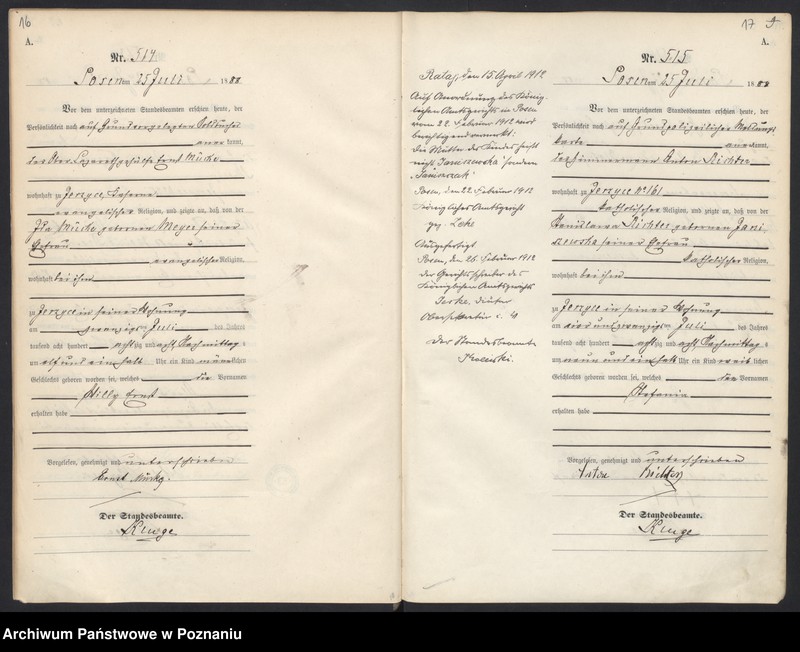 16
A.
Nr. 514.
Posen am 25 Juli 1888
Vor dem unterzeichneten Standesbeamten erschien heute, der
Persönlichkeit nach auf Grund vorgelegten Soldbuches
anerkannt,
der Ober Lazarethgehülfe Ernst
wohnhaft zu Jerzyce, Kaserne
evangelischer Religion, und zeigte an, daß von der
Ida geborenen Meyer seiner
Ehefrau
evangelischer Religion,
wohnhaft bei ihm
zu Jerzyce in seiner Wohnung
am zwanzigsten Juli des Jahres
tausend acht hundert achtzig und acht Nachmittag s
um elf und einhalb Uhr ein Kind männlichen
Geschlechts geboren worden sei, welches die Vornamen
Willy Ernst
erhalten habe
Vorgelesen, genehmigt und unterschrieben
Ernst
Der Standesbeamte.
17
A.
Rataj, den 15. April 1912
Auf Anordnung des König
lichen Amtsgerichts in Posen
vom 22. Februar 1912 wird
berichtigend vermerkt:
Die Mutter des Kindes heißt
nicht Janiszewska sondern
Posen, den 22. Februar 1912
Königliches Amtsgericht
gez.
Ausgefertigt
Posen, den 26. Februar 1912
Der Gerichtsschreiber des
Königlichen Amtsgerichts
Der Standesbeamte
Nr. 515
Posen am 25 Juli 1888
Vor dem unterzeichneten Standesbeamten erschien heute, der
Persönlichkeit nach auf Grund polizeilicher Meldungs
karte anerkannt,
der Zimmermann Anton Richter
wohnhaft zu Jerzyce No 161
katholischer Religion, und zeigte an, daß von der
Stanislawa Richter geborenen Jani
szewska seiner Ehefrau
katholischer Religion,
wohnhaft bei ihm
zu Jerzyce in seiner Wohnung
am vier und zwanzigsten Juli des Jahres
tausend acht hundert achtzig und acht Nachmittag s
um neun und einhalb Uhr ein Kind weiblichen
Geschlechts geboren worden sei, welches den Vornamen
Stefania
erhalten habe
Vorgelesen, genehmigt und unterschrieben
Anton Richter
Der Standesbeamte.
Archiwum Państwowe w Poznaniu